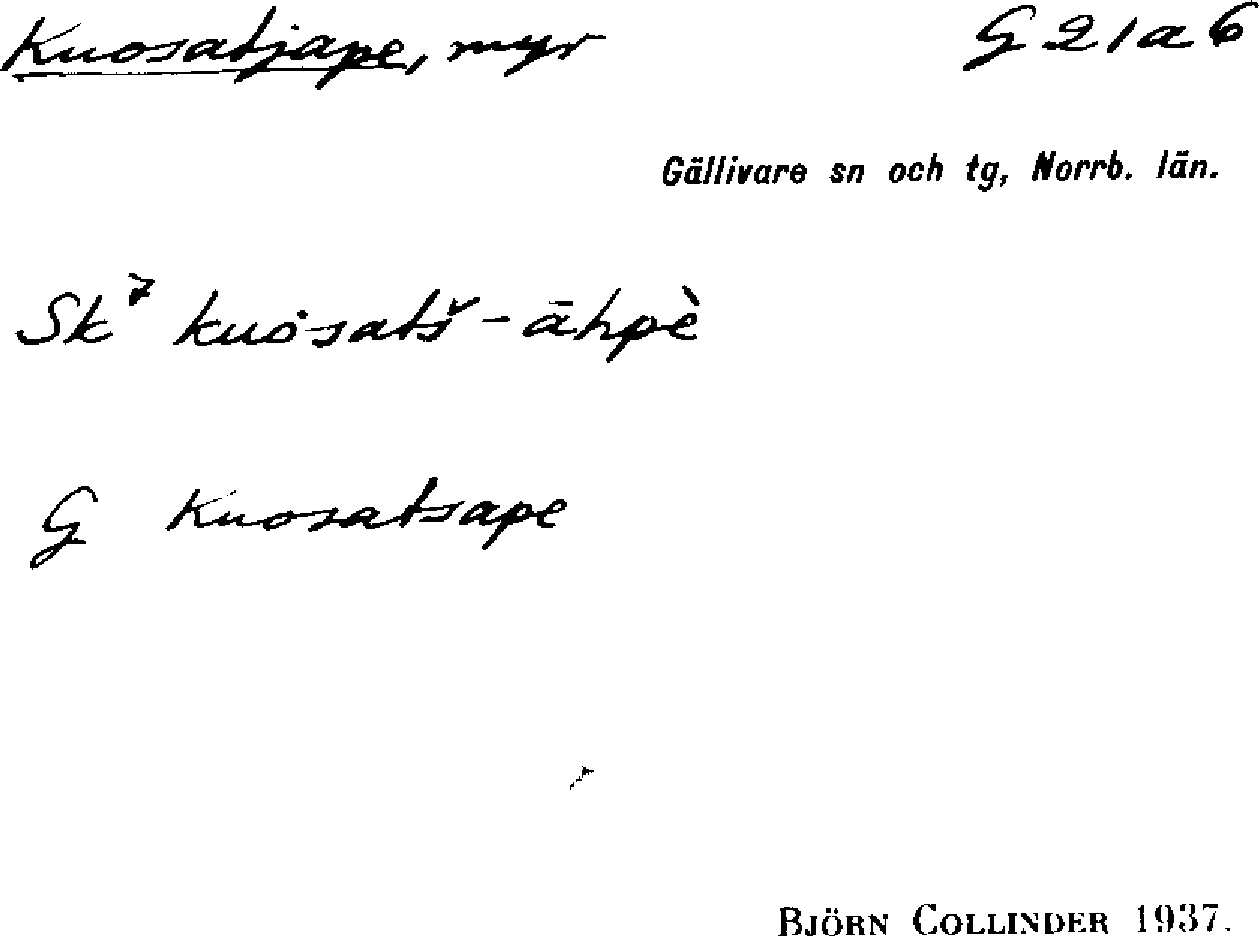 Kuosatjape, myr G 21 a 6
Gällivare sn och tg, Norrb. län.
Sk⁷ kuȯsatš-āhpè
G Kuosatsape
BJÖRN COLLINDER 1937.